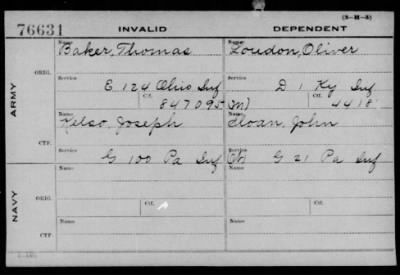 (3-H-3)
76631 INVALID DEPENDENT
Name Name
Baker, Thomas Loudon, Oliver
ARMY
ORIG.
Service Service
E 124 Ohio Inf D 1 Ky Inf
Ctf. Ctf.
847095 (M) 4418
Name Name
Kelso, Joseph Sloan, John
CTF.
Service Service
G 100 Pa Inf G 21 Pa Inf
NAVY
Name Name
ORIG.
Service Ctf. Service Ctf.
Name Name
CTF.
Service Service